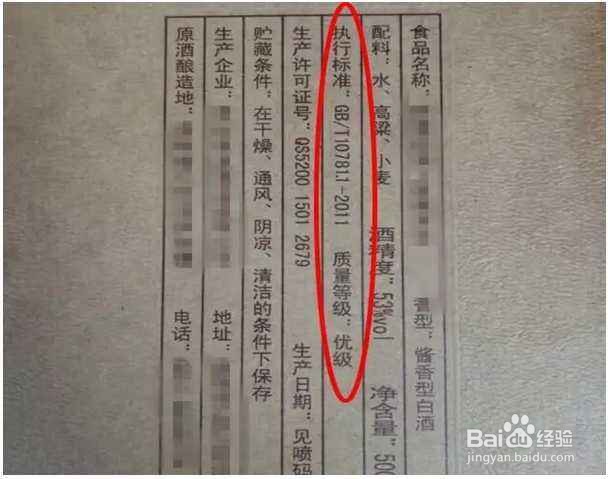 食品名称： 香型：酱香型白酒
配料：水、高粱、小麦 酒精度：53%vol 净含量：500
执行标准：GB/T10781.1-2011 质量等级：优级
生产许可证号：QS5200 1501 2679 生产日期：见喷码
贮藏条件：在干燥、通风、阴凉、清洁的条件下保存
生产企业： 地址：
原酒酿造地： 电话：
Baidu经验
jingyan.baidu.com